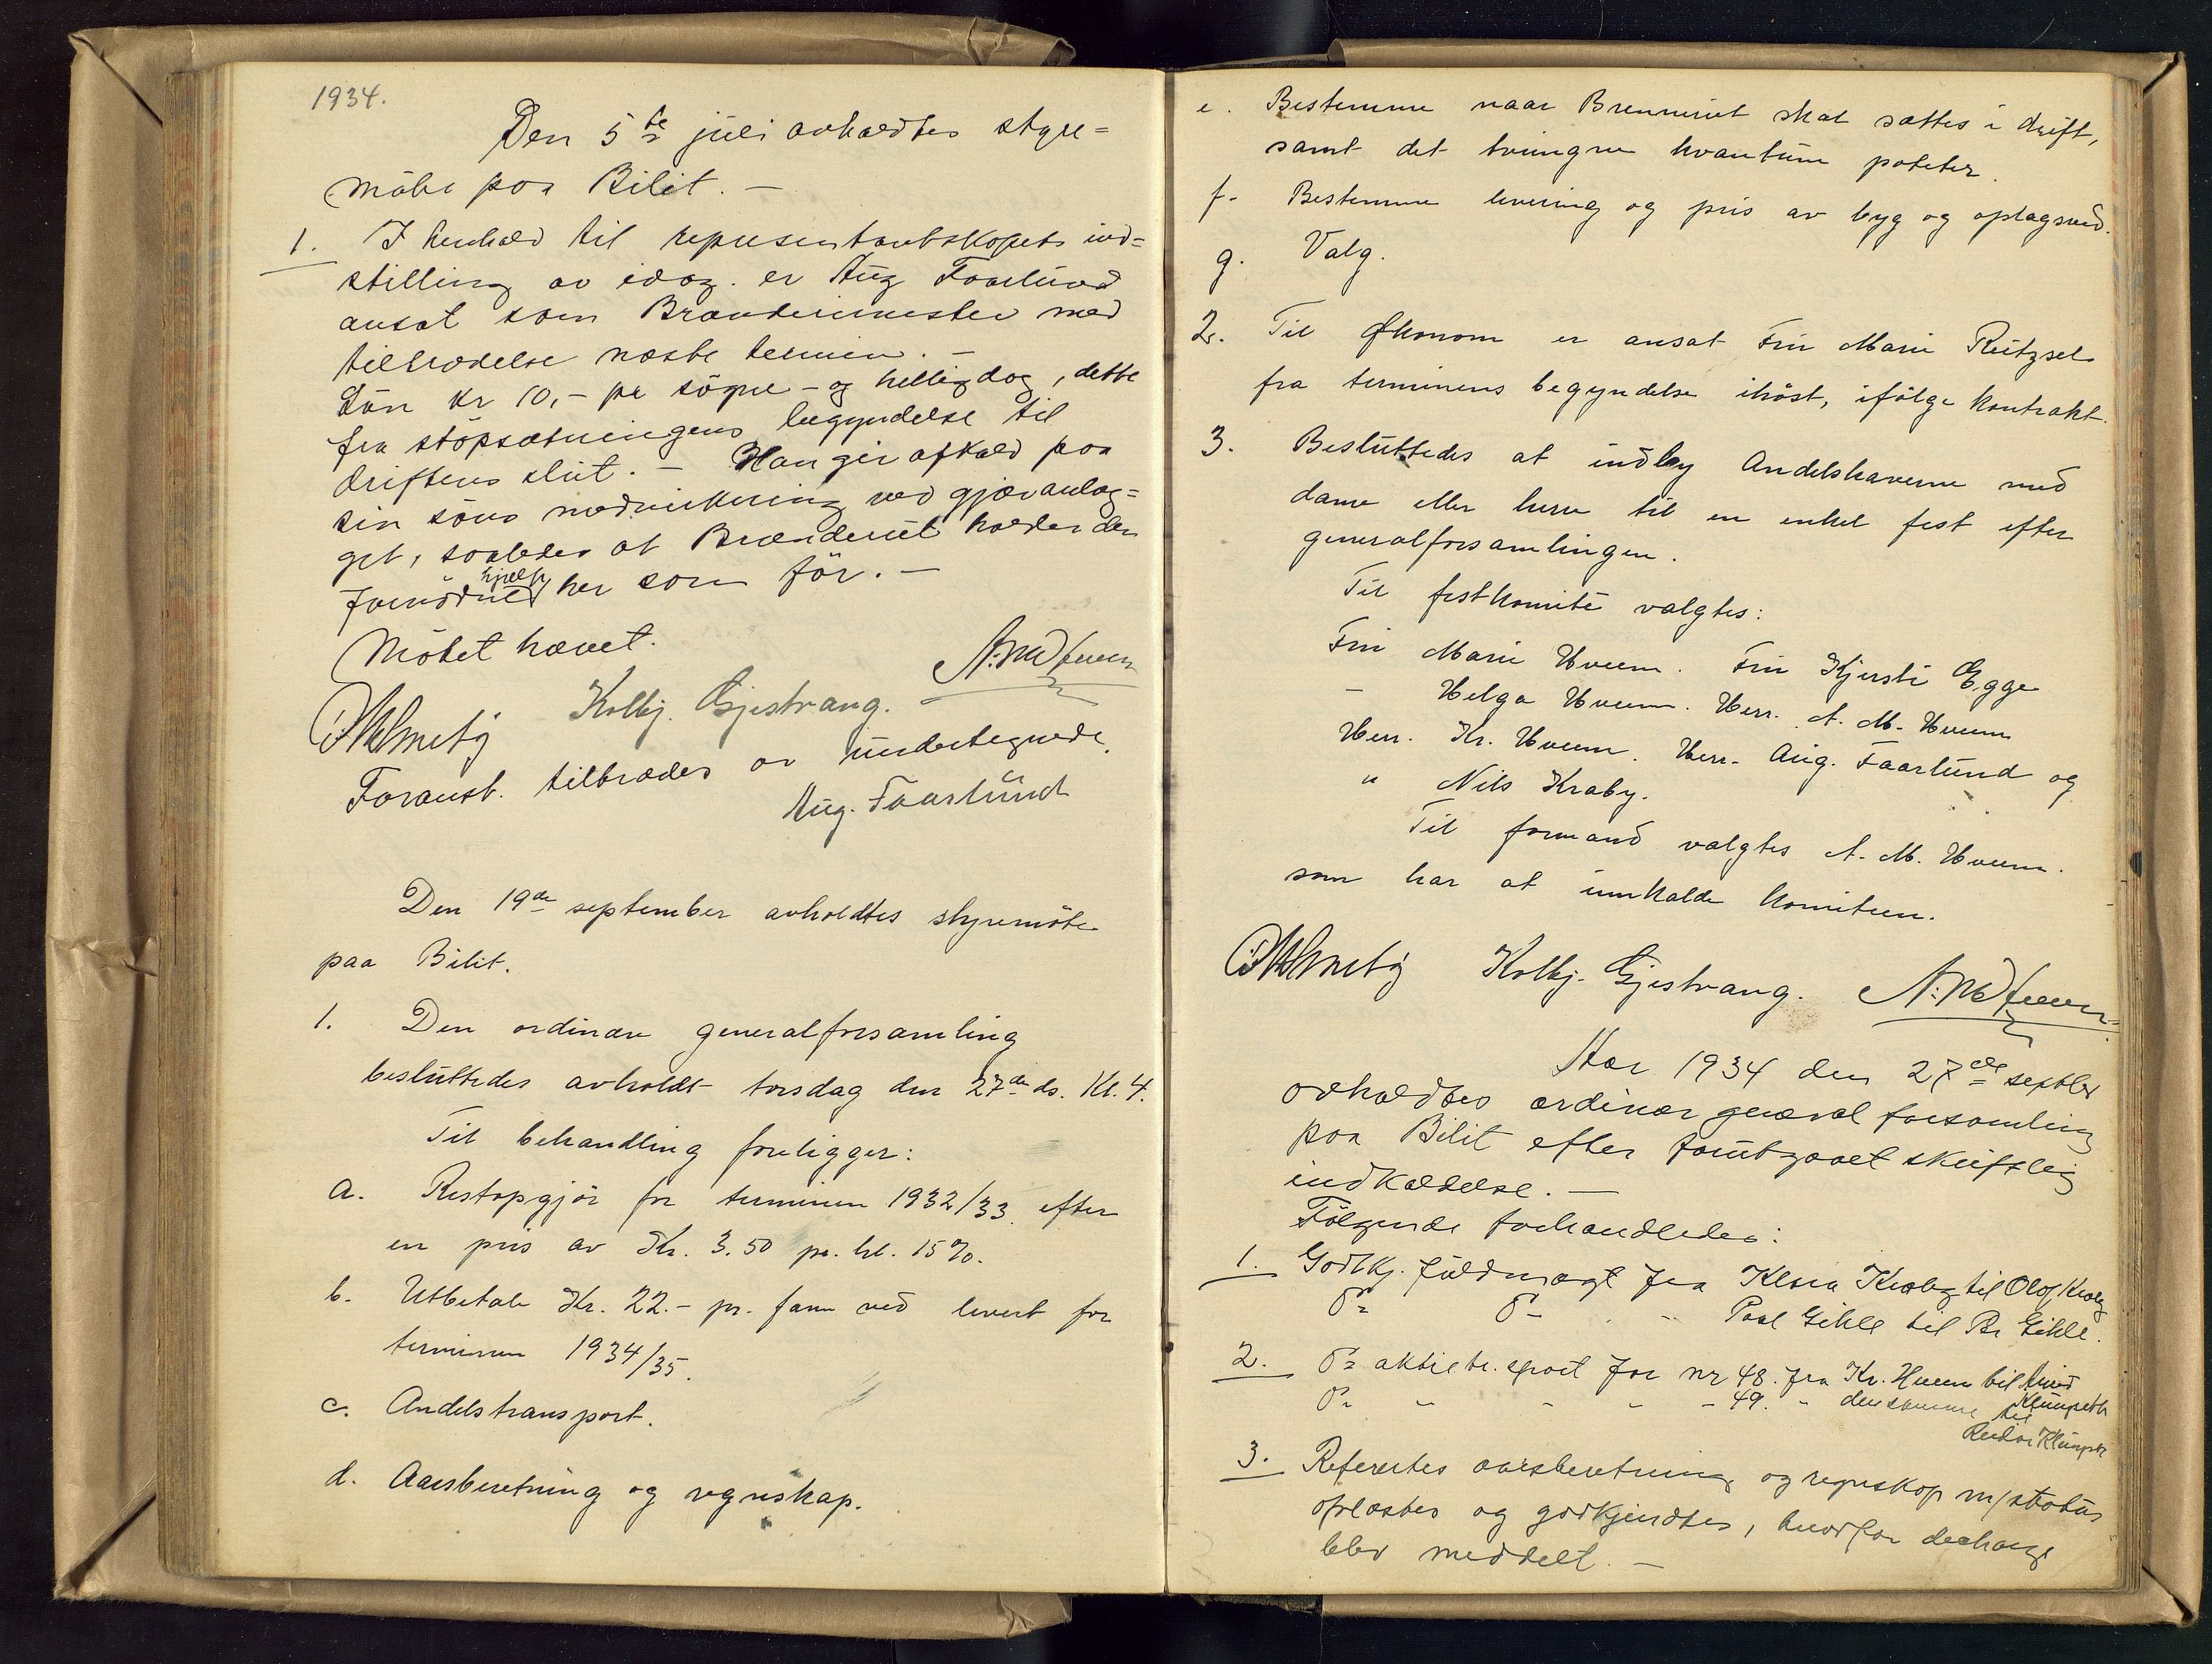 1934.
Den 5te juli avholdtes styre=
möte paa Bilit. —
1. I henhold til representantskapets ind=
stilling av idag. er Aug Faarlund
ansat som Brænderimester med
tiltrædelse næste termin. —
Lön kr 10,- pr sögne- og helligdag, dette
fra stöpsætningens begyndelse til
driftens slut. — Han gir afkald paa
sin söns medvirkning ved gjæranlæg=
get, saaledes at Brænderiet holder den
fornödne hjælp her som för. —
Mötet hævet.
Kolbj. Gjestvang.
Foranst. tiltrædes av undertegnede.
Aug. Faarlund
Den 19de september avholdtes styremöte
paa Bilit.
1. Den ordinære generalforsamling
besluttedes avholdt torsdag den 27de ds. Kl. 4.
Til behandling foreligger:
a. Restopgjör for terminen 1932/33. efter
en pris av Kr. 3.50 pr. hl. 15%.
b. Utbetale Kr. 22.- pr. favn ved levert for
terminen 1934/35.
c. Andelstransport.
d. Aarsberetning og regnskap.
e. Bestemme naar Brenneriet skal sættes i drift,
samt det tvungne kvantum poteter.
f. Bestemme levering og pris av byg og oplagsved.
g. Valg.
2. Til Økonom er ansat Frk Marie
fra terminens begyndelse ihöst, ifölge kontrakt.
3. Besluttedes at indby Andelshaverne med
dame eller herre til en enkel fest efter
generalforsamlingen.
Til festkomité valgtes:
Frk Marie Hveem. Frk Kjersti Egge
— Helga Hveem. Herr. A. M. Hveem
Herr. Kr. Hveem. Herr. Aug. Faarlund og
" Nils Kraby.
Til formand valgtes A. M. Hveem.
som har at innkalde komiteen.
Kolbj. Gjestvang.
Aar 1934 den 27de septbr
avholdtes ordinær general forsamling
paa Bilit efter forutgaaet skriftlig
indkaldelse. —
Følgende forhandledes:
1. Godkj. fuldmagt fra Klara Kraby til Olof Kraby
Do Do - Paal Gihle til Br Gihle.
2. Do aktietr.sport for nr 48. fra Kr. Hveem til
Do - - - - 49. - densamme til
3. Refereertes aarsberetning og regnskap m/status
oplæstes og godkjendtes, hvorfor decharge
blev meddelt. —